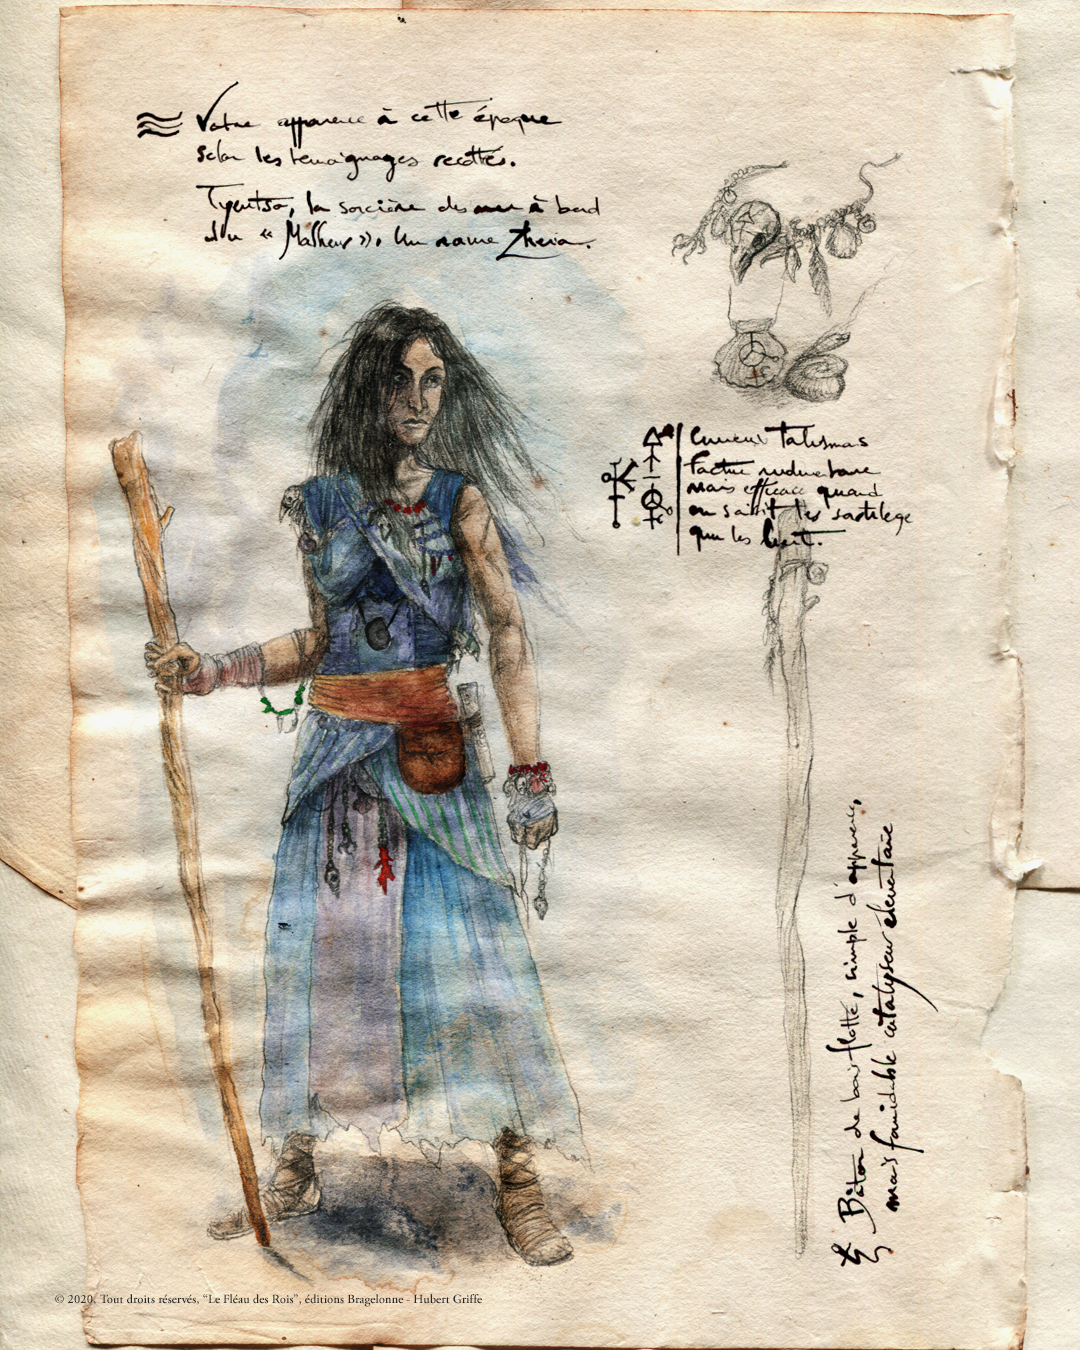 Votre apparence à cette époque
selon les témoignages récoltés.
Tyentso, la sorcière des mers à bord
du « Malheur ». Un navire Zheria.
Curieux talismans
facture rudimentaire
mais efficace quand
on saisit les sortilège
que les lient.
Bâton de bois flotté, simple d'apparence,
mais formidable catalyseur élémentaire
© 2020. Tout droits réservés, “Le Fléau des Rois”, éditions Bragelonne - Hubert Griffe